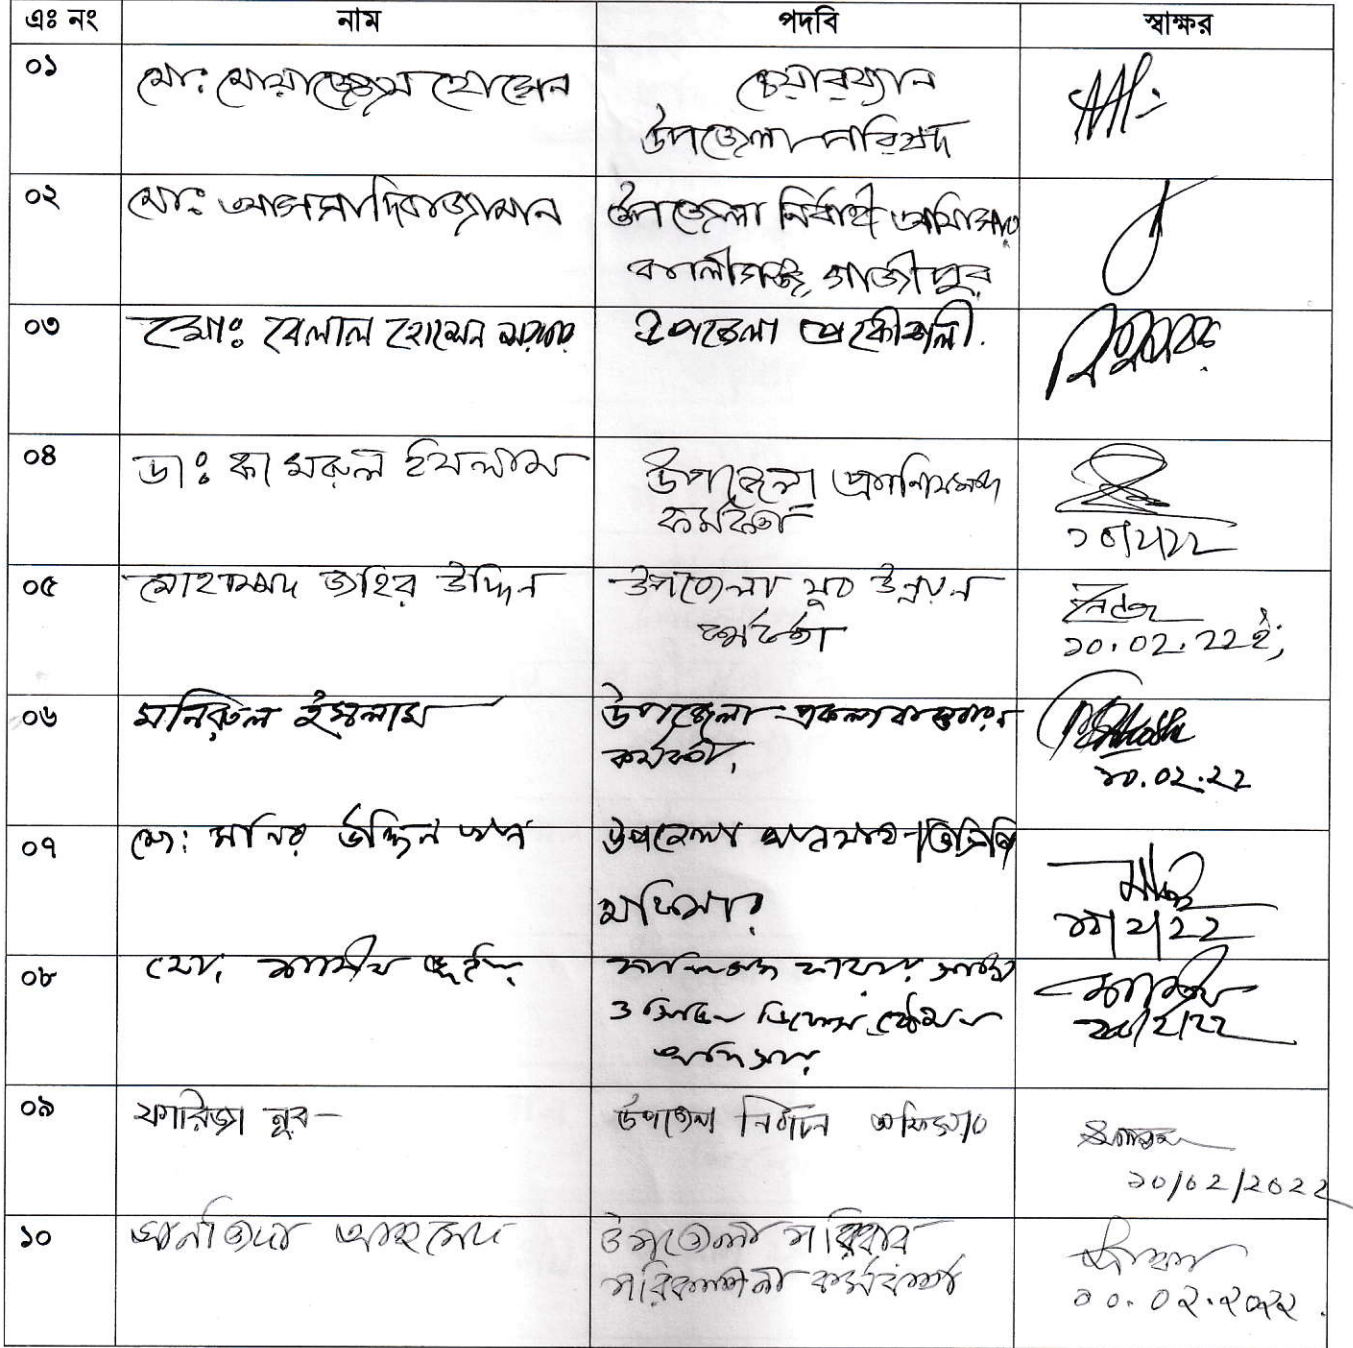 এঃ নং নাম পদবি স্বাক্ষর
০১ মো: মোয়াজ্জেম হোসেন চেয়ারম্যান
উপজেলা পরিষদ
০২ মোঃ আসসাদিকজামান উপজেলা নির্বাহী অফিসার
কালীগঞ্জ, গাজীপুর
০৩ মোঃ বেলাল হোসেন সরকার উপজেলা প্রকৌশলী.
০৪ ডাঃ কামরুল ইসলাম উপজেলা প্রাণিসম্পদ
কর্মকর্তা
১০/২/২২
০৫ মোহাম্মদ জহির উদ্দিন উপজেলা যুব উন্নয়ন
কর্মকর্তা
১০.০২.২২ইং
০৬ মনিরুল ইসলাম উপজেলা প্রকল্প বাস্তবায়ন
কর্মকর্তা,
১০.০২.২২
০৭ মো: মনির উদ্দিন খান উপজেলা আনসার ভিডিপি
অফিসার
১০/২/২২
০৮ মো: কালিগঞ্জ ফায়ার সার্ভিস
ও সিভিল ডিফেন্স ষ্টেশন
অফিসার
১০/২/২২
০৯ ফারিজা নূর উপজেলা নির্বাচন অফিসার
১০/০২/২০২২
১০ সানজিদা আহমেদ উপজেলা পরিবার
পরিকল্পনা কর্মকর্তা
১০.০২.২০২২.